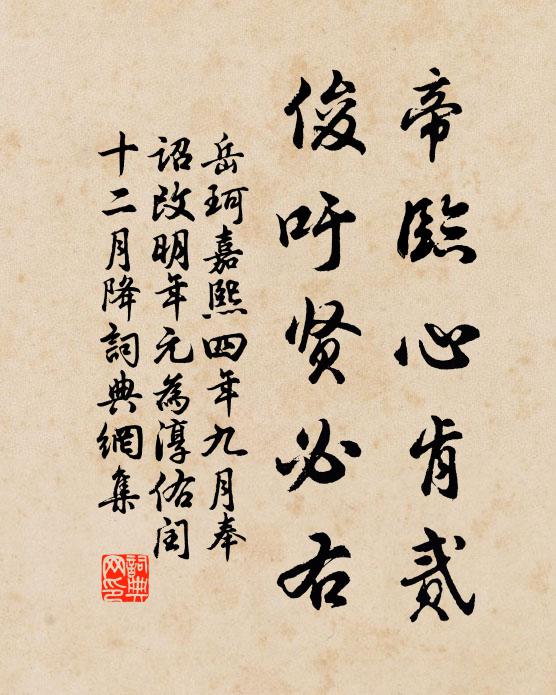 帝臨心肯貳
俊吁贤必右
岳珂嘉熙四年九月奉
詔改明年元為淳佑闰
十二月降詞典網集
詞典网印